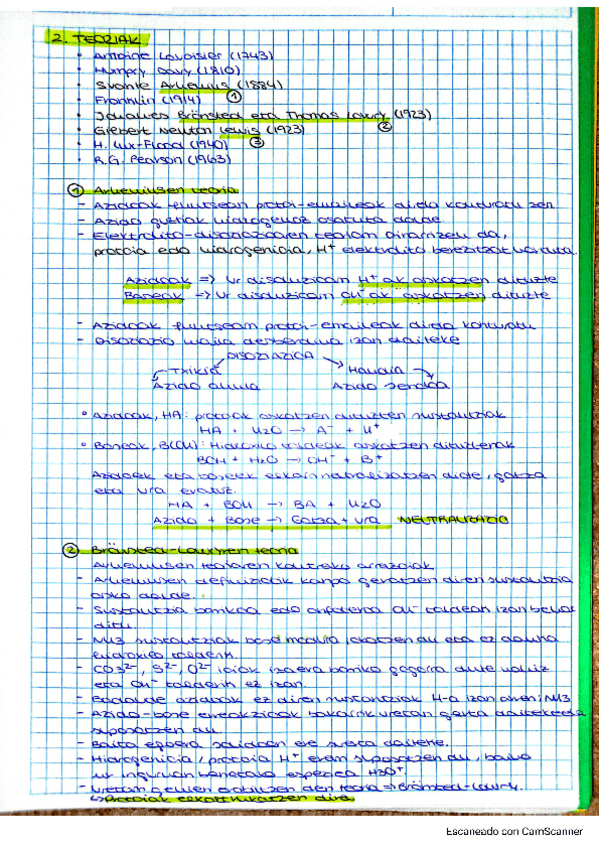 2. TEORIAK
• Antoine Lavoisier (1743)
• Humpry Davy (1810)
• Svante Arrhenius (1884)
• Franklin (1914) ①
• Johannes Brönsted eta Thomas Lowry (1923)
• Gilbert Newton Lewis (1923) ②
• H. Lux-Flood (1940) ③
• R.G. Pearson (1963)
① Arrheniusen teoria
- Azidoak funtsean protoi-emaileak dira konturatu zen
- Azido guztiak hidrogenoz osatuta daude
- Elektrolito-disoziazioaren teoriam oinarrizko da,
protoia edo hidrogenioia, H⁺ elektrolito berezitzat hartuta.
Azidoak => Ur disoluzioan H⁺ak askatzen dituzte
Baseak => Ur disoluzioan OH⁻ak askatzen dituzte
- Azidoak funtsean protoi-emaileak dira konturatu
- Disoziazio maila desberdina izan daiteke
DISOZIAZIOA
Txikia Handia
Azido ahula Azido sendoa
• Azidoak, HA: protoiak askatzen dituzten sustantziak
HA + H₂O → A⁻ + H⁺
• Baseak, B(OH): Hidroxilo taldeak askatzen dituztenak
BOH + H₂O → OH⁻ + B⁺
Azidoek eta baseek elkar neutralizatzen dute, gatza
eta ura emanez.
HA + BOH → BA + H₂O
Azido + Base → Gatza + ura NEUTRALIZAZIO
② Brönsted-Lowryren teoria
Arrheniusen teoriaren kontrako arrazoiak
- Arrheniusen definiziotik kanpo geratzen diren sustantzia
asko daude.
- Sustantzia basikoa edo anfoteroa OH⁻ taldeak izan behar
ditu.
- NH3 sustantziak base modura jokatzen du eta ez dauka
hidroxilo talderik.
- CO3²⁻, S²⁻, O²⁻ ioiak izaera basiko gogorra dute nahiz
eta OH⁻ talderik ez izan.
- Badaude azidoak ez diren sustantziak H-a izan arren: NH3
- Azido-base erreakzioak bakarrik uretan gerta daitekeela
suposatzen du.
- Baita egoera solidoan ere gerta daiteke.
- Hidrogenioia / protoia H⁺ eran suposatzen du, baino
ur inguruan benetako espezia H3O⁺.
- Uretan gehien erabiltzen den teoria → Brönsted-Lowry.
↳ Protoiak elkartrukatzen dira
Escaneado con CamScanner